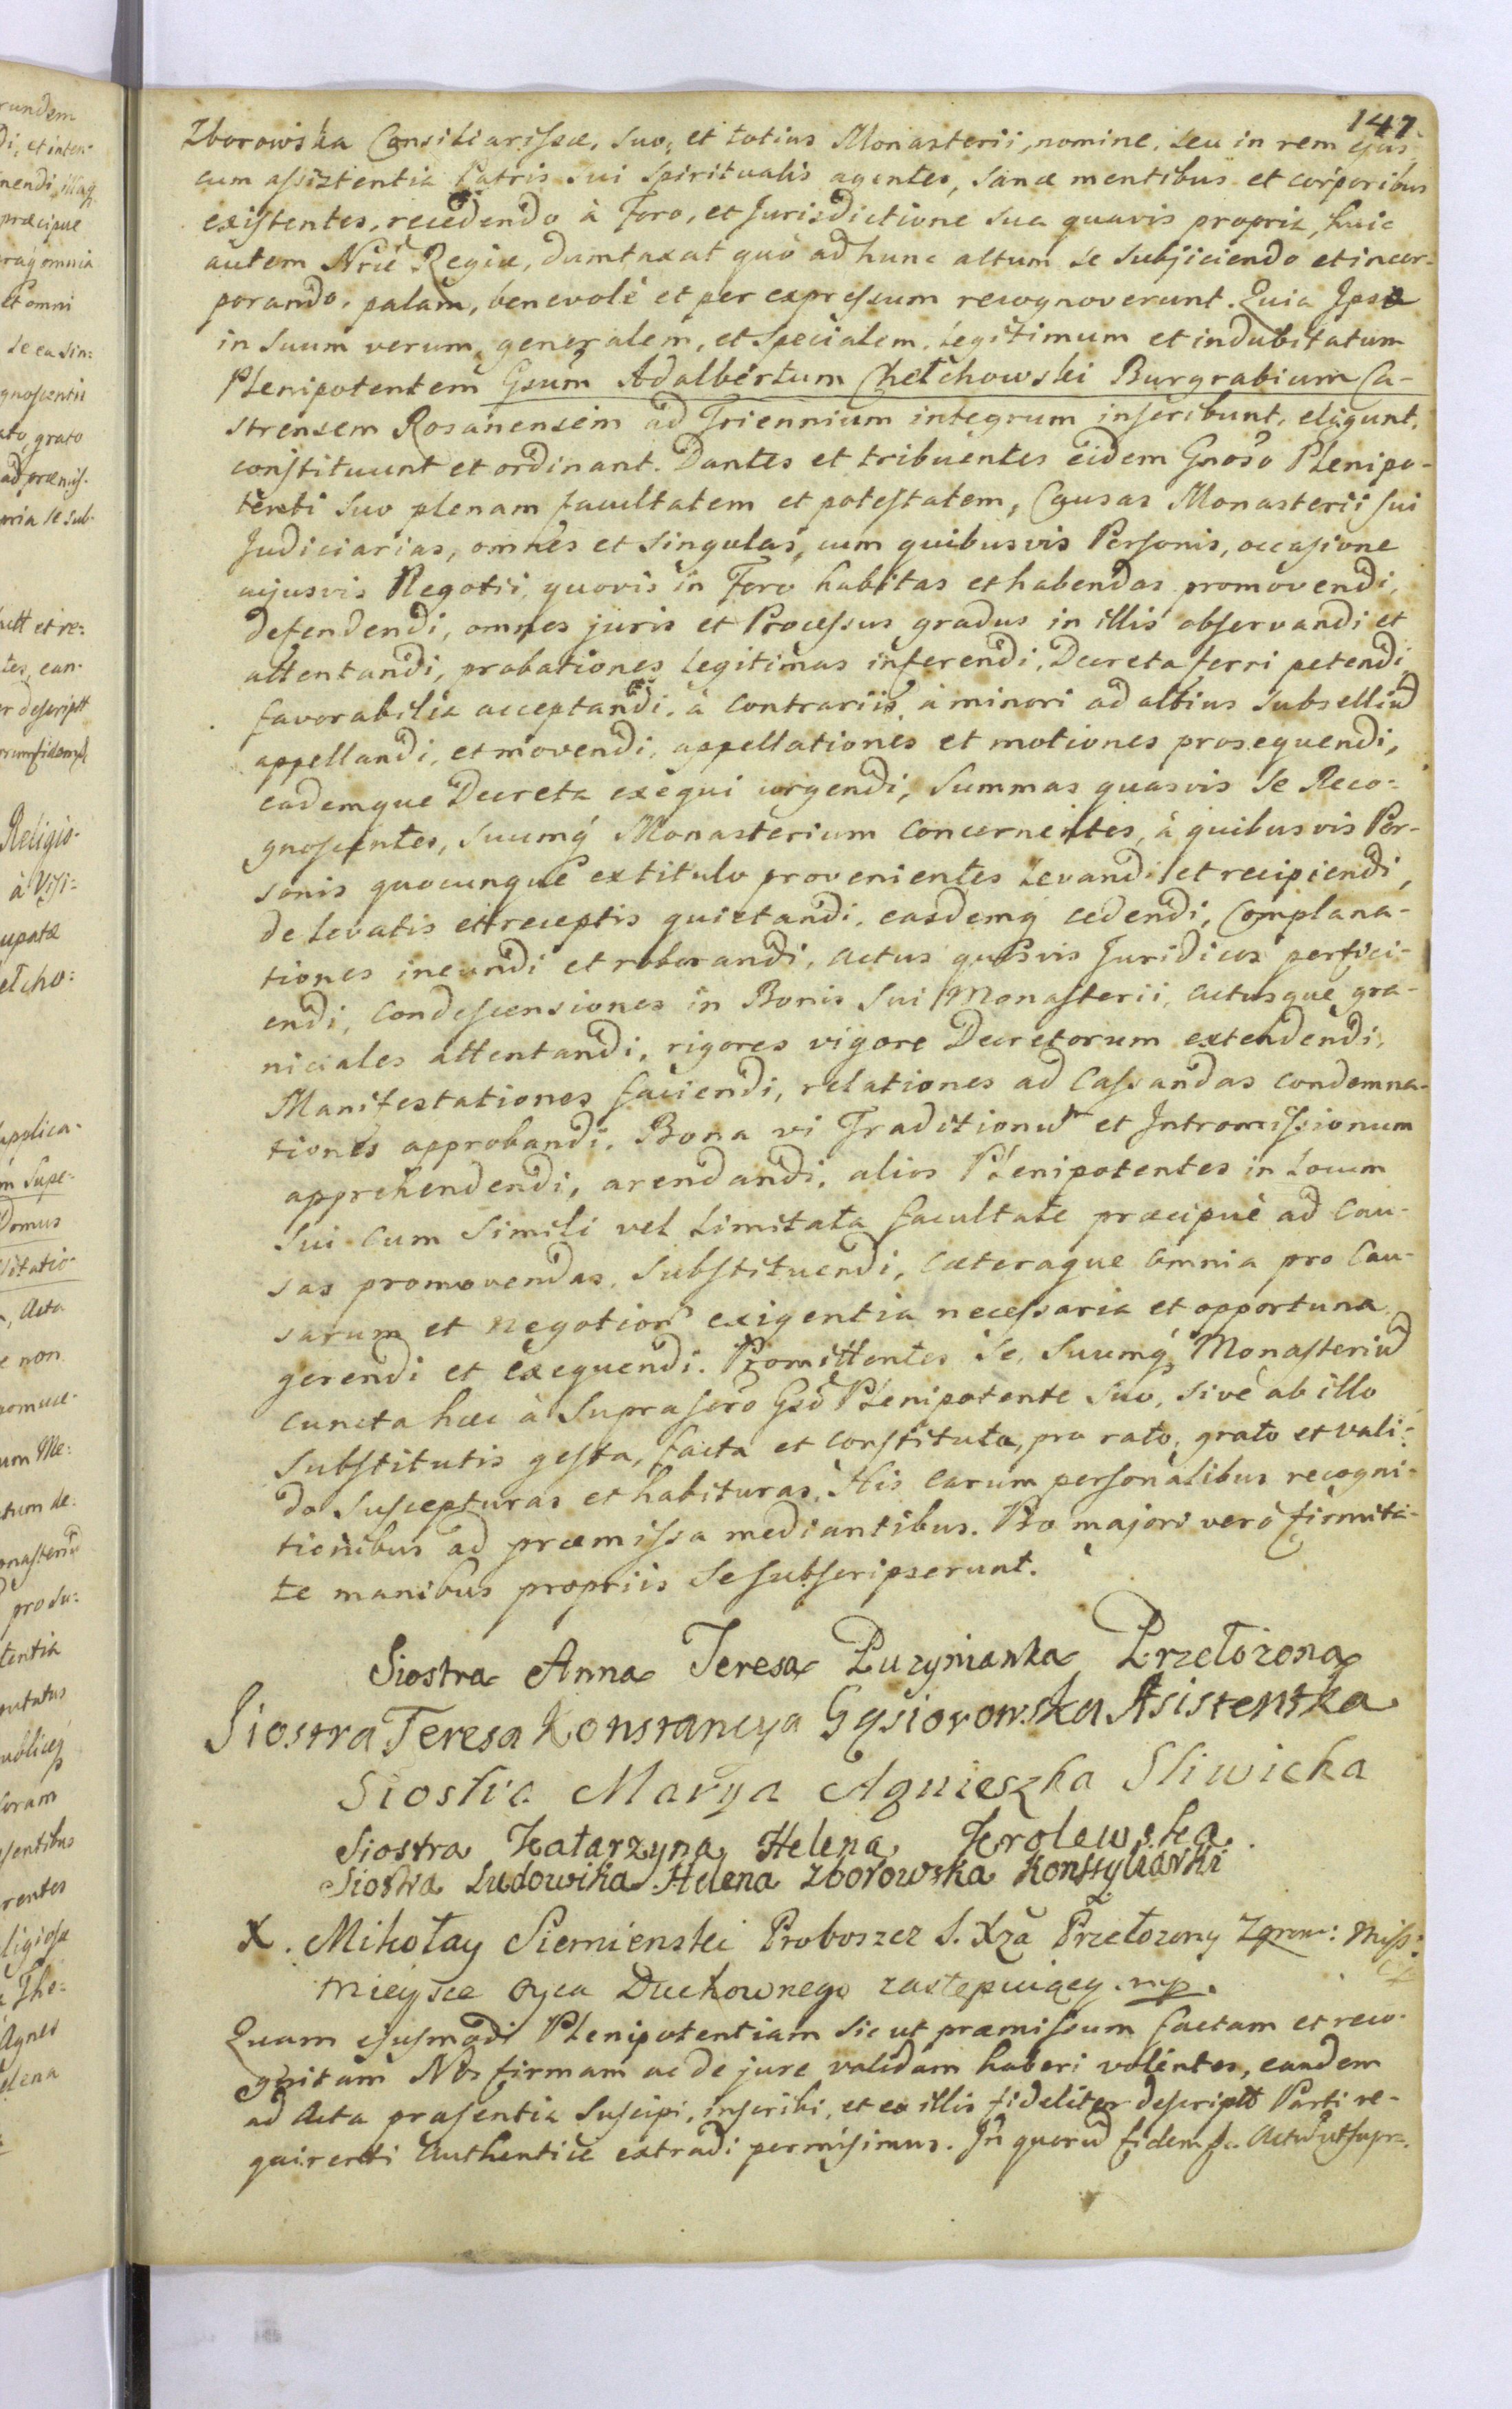 147
Zborowska Consiliarissæ, suo, et totius Monasterii, nomine, seu in rem ejus
cum assistentia Patris sui Spiritualis agentes, sanæ mentibus et corporibus
existentes, recedendo à Foro, et Jurisdictione sua quavis propria, huic
autem Nræ Regiæ, dumtaxat quò ad hunc actum se subjiciendo et incor-
porando, palam, benevolè et per expressum recognoverunt. Quia Ipsæ
in suum verum, generalem, et specialem, legitimum et indubitatum
Plenipotentem Gsum Adalbertum Chełchowski Burgrabium Ca-
strensem Rosanensem ad Triennium integrum inscribunt, eligunt,
constituunt et ordinant. Dantes et tribuentes eidem Gnoso Plenipo-
tenti suo plenam facultatem et potestatem, Causas Monasterii sui
Judiciarias, omnes et singulas, cum quibusvis Personis, occasione
cujusvis Negotii, quovis in Foro habitas et habendas promovendi,
defendendi, omnes juris et Processus gradus in illis observandi et
attentandi, probationes legitimas inferendi, Decreta ferri petendi
favorabilia acceptandi, à contrariis, à minori ad altius subselliū
appellandi, et movendi, appellationes et motiones prosequendi,
eademque Decreta exequi urgendi, summas quasvis se Reco-
gnoscentes, suumq Monasterium concernentes, à quibusvis Per-
sonis quocunque ex titulo provenientes levandi et recipiendi,
de levatis et receptis quietandi, easdemq cedendi, Complana-
tiones ineundi et roborandi, actus quosvis Juridicos perfici-
endi, Condescensiones in Bonis sui Monasterii, actusque gra-
niciales attentandi, rigores vigore Decretorum extendendi,
Manifestationes faciendi, relationes ad cassandas condemna-
tiones approbandi, Bona vi Traditionū et Intromissionum
apprehendendi, arendandi, alios Plenipotentes in locum
sui cum simili vel limitata facultate præcipuè ad Cau-
sas promovendas, substituendi, cæteraque omnia pro Cau-
sarum et negotior exigentia necessaria et opportuna
gerendi et exequendi. Promittentes se, suumq Monasteriū
cuncta hæc à suprascro Gsō Plenipotente suo, sivè ab illo
substitutis gesta, facta et constituta, pro rato, grato et vali-
do suscepturas et habituras. His earum personalibus recogni-
tionibus ad præmissa mediantibus. Pro majori verò firmita-
te manibus propriis se subscripserunt.
Siostra Anna Teresa Puzynianka Przełożona
Siostra Teresa Konstancya Gąsiorowska Asistentka
Siostra Marya Agnieszka Sliwicka
Siostra Katarzyna Helena Krolewska
Siostra Ludowika Helena Zborowska Konsyliarki
X. Mikołay Siemienski Proboszcz S. Xza Przełożony Zgrom: Miss:
mieysce oyca Duchownego zastępuiący. mp.
Quam ejusmodi Plenipotentiam sic ut præmissum factam et reco-
gnitam Nos firmam ac de jure validam haberi volentes, eandem
ad Acta præsentia suscipi, inscribi, et ex illis fideliter descriptt Parti re-
quirenti authenticè extradi permisimus. In quorū fidem p. Actū ut supra.